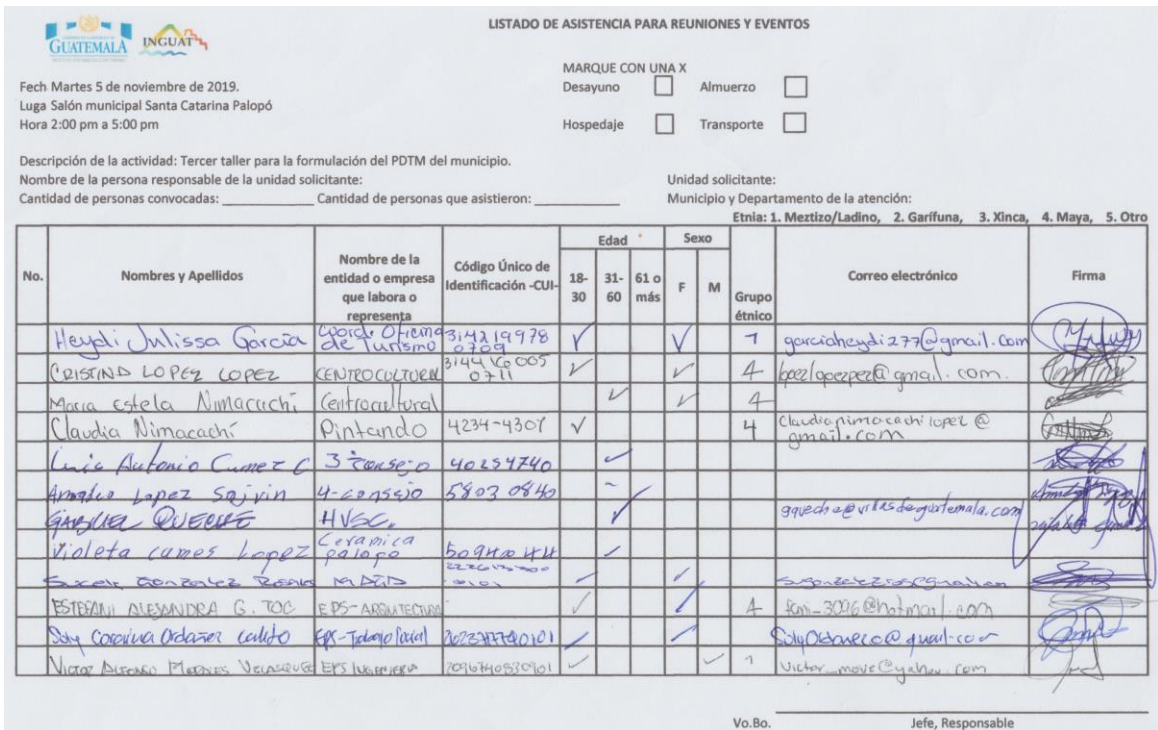 GUATEMALA
INGUAT
LISTADO DE ASISTENCIA PARA REUNIONES Y EVENTOS
MARQUE CON UNA X
Fech Martes 5 de noviembre de 2019.
Desayuno Almuerzo
Luga Salón municipal Santa Catarina Palopó
Hora 2:00 pm a 5:00 pm
Hospedaje Transporte
Descripción de la actividad: Tercer taller para la formulación del PDTM del municipio.
Nombre de la persona responsable de la unidad solicitante: Unidad solicitante:
Cantidad de personas convocadas: Cantidad de personas que asistieron: Municipio y Departamento de la atención:
Etnia: 1. Meztizo/Ladino, 2. Garífuna, 3. Xinca, 4. Maya, 5. Otro
No. Nombres y Apellidos Nombre de la entidad o empresa que labora o representa Código Único de Identificación -CUI- Edad 18-30 31-60 61 o más Sexo F M Grupo étnico Correo electrónico Firma
Heydi Julissa García Coord. Oficina de Turismo 314219978 0709 1 garciaheydi277@gmail.com
CRISTINA LOPEZ LOPEZ CENTRO CULTURAL 0711 4 @gmail.com.
Maria Estela Nimacachí Centrocultural 4
Claudia Nimacachí Pintando 4234-4307 4 Claudianimacachilopez@gmail.com
Luis Antonio Cumez C 3 consejo 40254740
Amadeo Lopez Sajvin 4-consejo 5803 0840
GABRIEL QUECHE HVSC. gqueche@villasdeguatemala.com
Violeta cumes Lopez Ceramica palopo
Gonzalez 0101
ESTEFANI ALEJANDRA G. TOC EPS-ARQUITECTURA 4 fani_3096@hotmail.com
Ordañez EPS-Trabajo Social
VICTOR MORALES VELASQUEZ EPS INGENIERIA 1 victor_move@yahoo.com
Vo.Bo. Jefe, Responsable